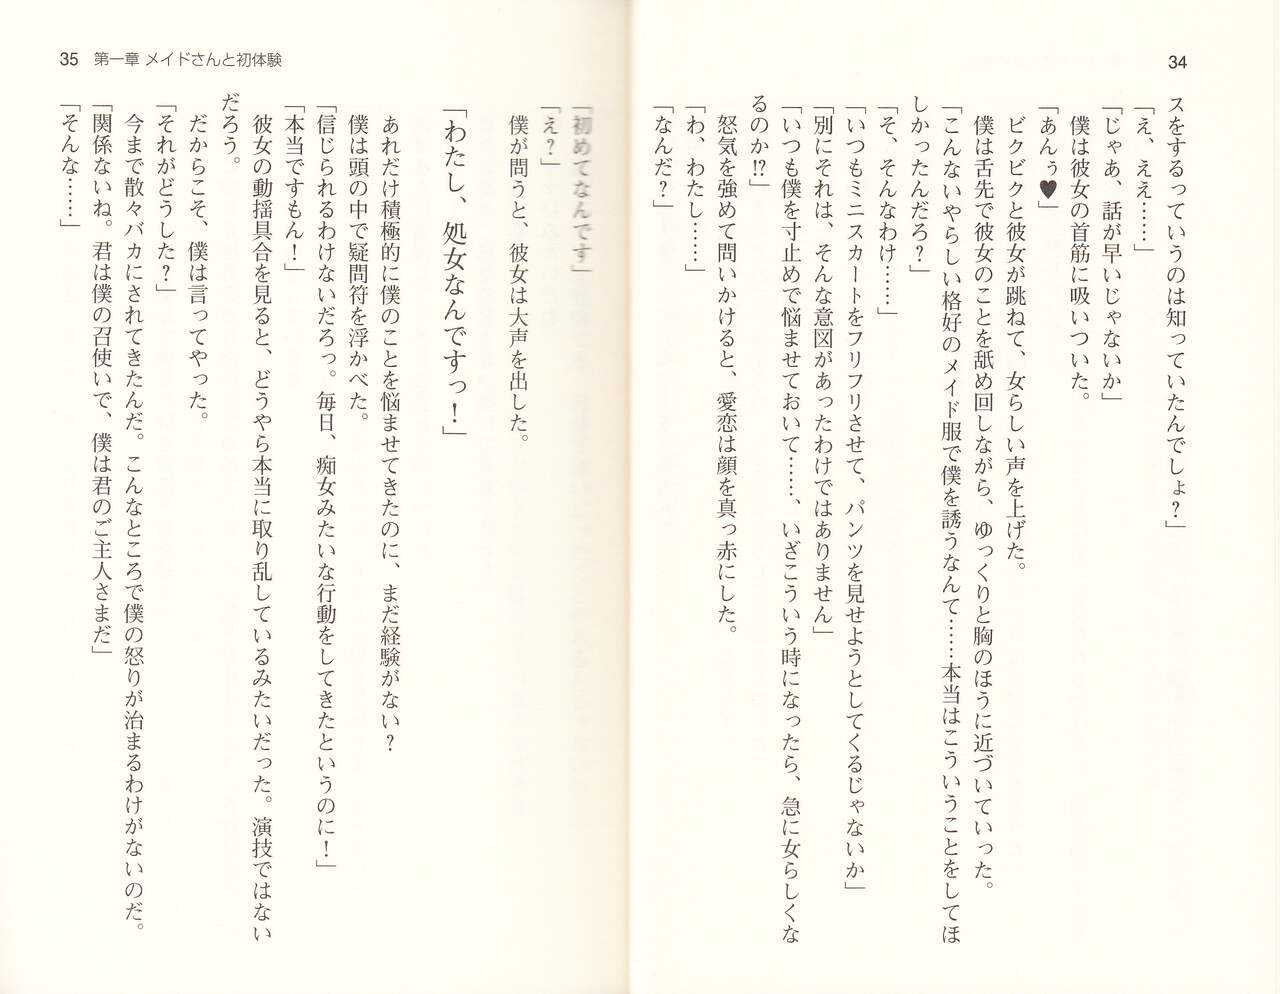 34
スをするっていうのは知っていたんでしょ？」
「え、ええ……」
「じゃあ、話が早いじゃないか」
僕は彼女の首筋に吸いついた。
「あんぅ♥」
ビクビクと彼女が跳ねて、女らしい声を上げた。
僕は舌先で彼女のことを舐め回しながら、ゆっくりと胸のほうに近づいていった。
「こんないやらしい格好のメイド服で僕を誘うなんて……本当はこういうことをしてほ
しかったんだろ？」
「そ、そんなわけ……」
「いつもミニスカートをフリフリさせて、パンツを見せようとしてくるじゃないか」
「別にそれは、そんな意図があったわけではありません」
「いつも僕を寸止めで悩ませておいて……、いざこういう時になったら、急に女らしくな
るのか!?」
怒気を強めて問いかけると、愛恋は顔を真っ赤にした。
「わ、わたし……」
「なんだ？」
35 第一章 メイドさんと初体験
「初めてなんです」
「え？」
僕が問うと、彼女は大声を出した。
「わたし、処女なんですっ！」
あれだけ積極的に僕のことを悩ませてきたのに、まだ経験がない？
僕は頭の中で疑問符を浮かべた。
「信じられるわけないだろっ。毎日、痴女みたいな行動をしてきたというのに！」
「本当ですもん！」
彼女の動揺具合を見ると、どうやら本当に取り乱しているみたいだった。演技ではない
だろう。
だからこそ、僕は言ってやった。
「それがどうした？」
今まで散々バカにされてきたんだ。こんなところで僕の怒りが治まるわけがないのだ。
「関係ないね。君は僕の召使いで、僕は君のご主人さまだ」
「そんな……」